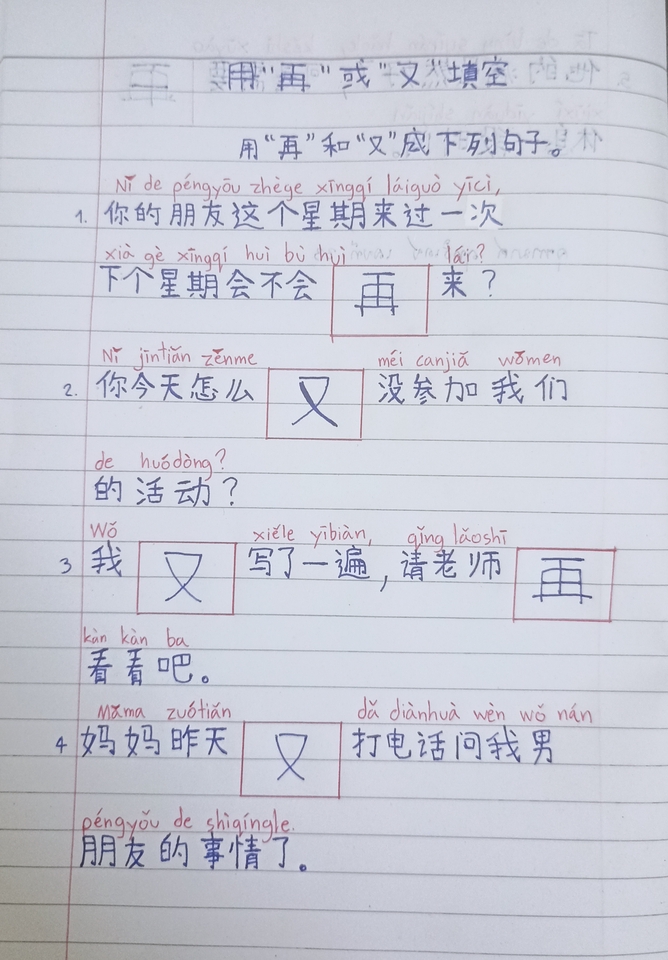 用“再“或“又”填空
用“再”和“又”成下列句子。
Nǐ de péngyōu zhège xīngqí láiguò yīcì,
1. 你的朋友这个星期来过一次
xià gè xīngqí huì bù huì lái?
下个星期会不会 再 来？
Nǐ jīntiān zěnme méi canjiā wǒmen
2. 你今天怎么 又 没参加我们
de huódòng?
的活动？
Wǒ xiěle yībiàn, qǐng lǎoshī
3 我 又 写了一遍,请老师 再
kàn kàn ba
看看吧。
Māma zuótiān dǎ diànhuà wèn wǒ nán
4 妈妈昨天 又 打电话问我男
péngyǒu de shìqíngle.
朋友的事情了。